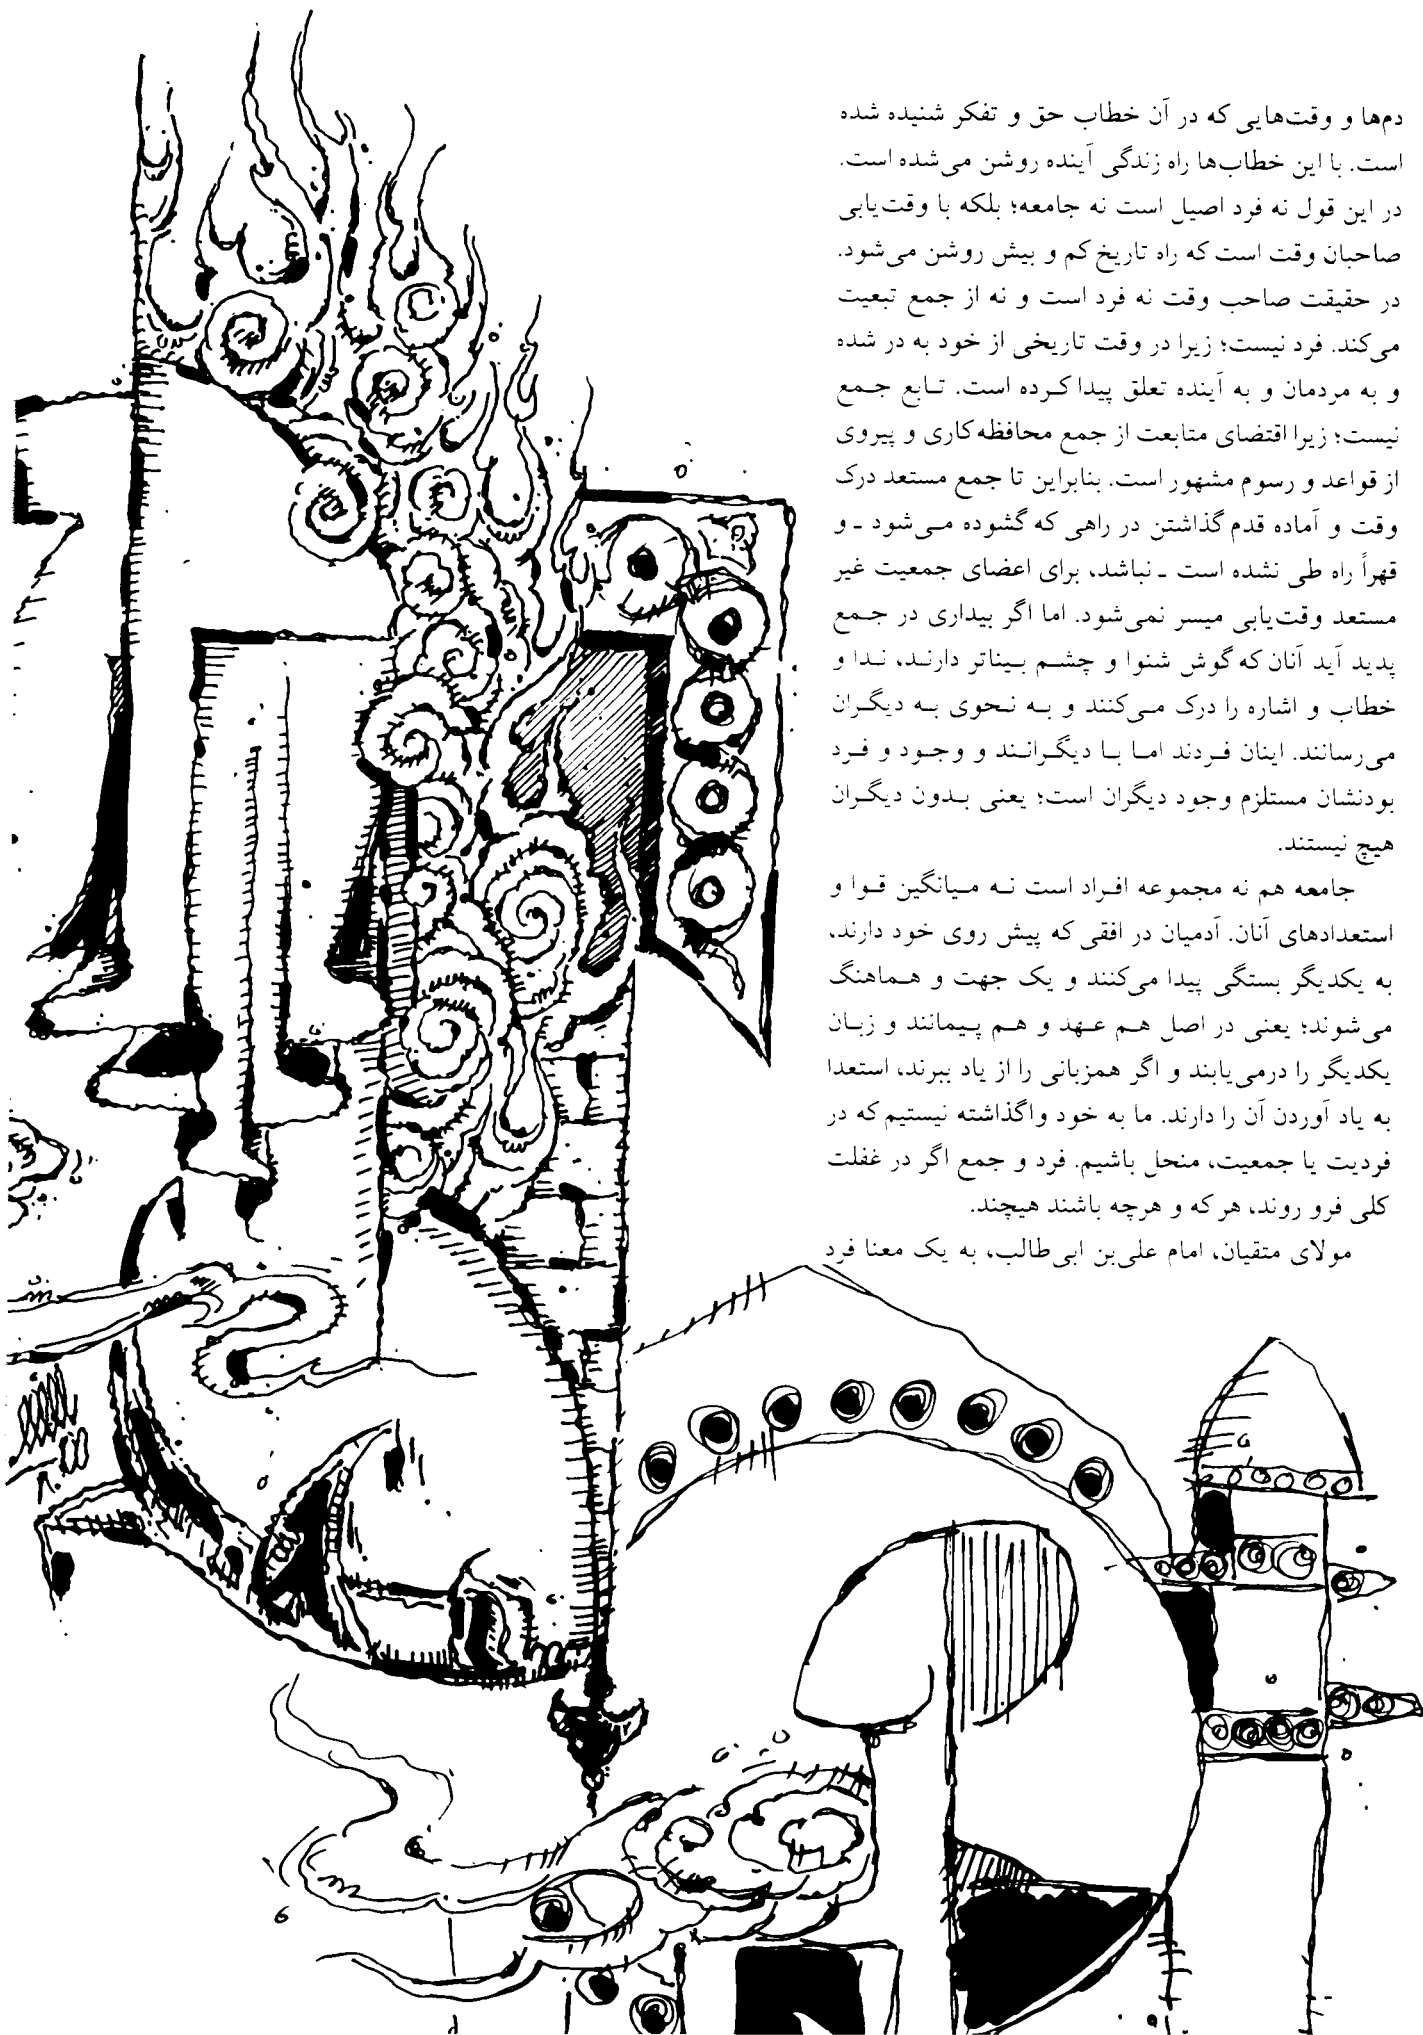 دم‌ها و وقت‌هایی که در آن خطاب حق و تفکر شنیده شده
است. با این خطاب‌ها راه زندگی آینده روشن می‌شده است.
در این قول نه فرد اصیل است نه جامعه؛ بلکه با وقت‌یابی
صاحبان وقت است که راه تاریخ کم و بیش روشن می‌شود.
در حقیقت صاحب وقت نه فرد است و نه از جمع تبعیت
می‌کند. فرد نیست؛ زیرا در وقت تاریخی از خود به در شده
و به مردمان و به آینده تعلق پیدا کرده است. تابع جمع
نیست؛ زیرا اقتضای متابعت از جمع محافظه‌کاری و پیروی
از قواعد و رسوم مشهور است. بنابراین تا جمع مستعد درک
وقت و آماده قدم گذاشتن در راهی که گشوده می‌شود ـ و
قهراً راه طی نشده است ـ نباشد، برای اعضای جمعیت غیر
مستعد وقت‌یابی میسر نمی‌شود. اما اگر بیداری در جمع
پدید آید آنان که گوش شنوا و چشم بیناتر دارند، ندا و
خطاب و اشاره را درک می‌کنند و به نحوی به دیگران
می‌رسانند. اینان فردند اما با دیگرانند و وجود و فرد
بودنشان مستلزم وجود دیگران است؛ یعنی بدون دیگران
هیچ نیستند.
جامعه هم نه مجموعه افراد است نه میانگین قوا و
استعدادهای آنان. آدمیان در افقی که پیش روی خود دارند،
به یکدیگر بستگی پیدا می‌کنند و یک جهت و هماهنگ
می‌شوند؛ یعنی در اصل هم عهد و هم پیمانند و زبان
یکدیگر را درمی‌یابند و اگر همزبانی را از یاد ببرند، استعدا
به یاد آوردن آن را دارند. ما به خود واگذاشته نیستیم که در
فردیت یا جمعیت، منحل باشیم. فرد و جمع اگر در غفلت
کلی فرو روند، هر که و هرچه باشند هیچند.
مولای متقیان، امام علی‌بن ابی‌طالب، به یک معنا فرد